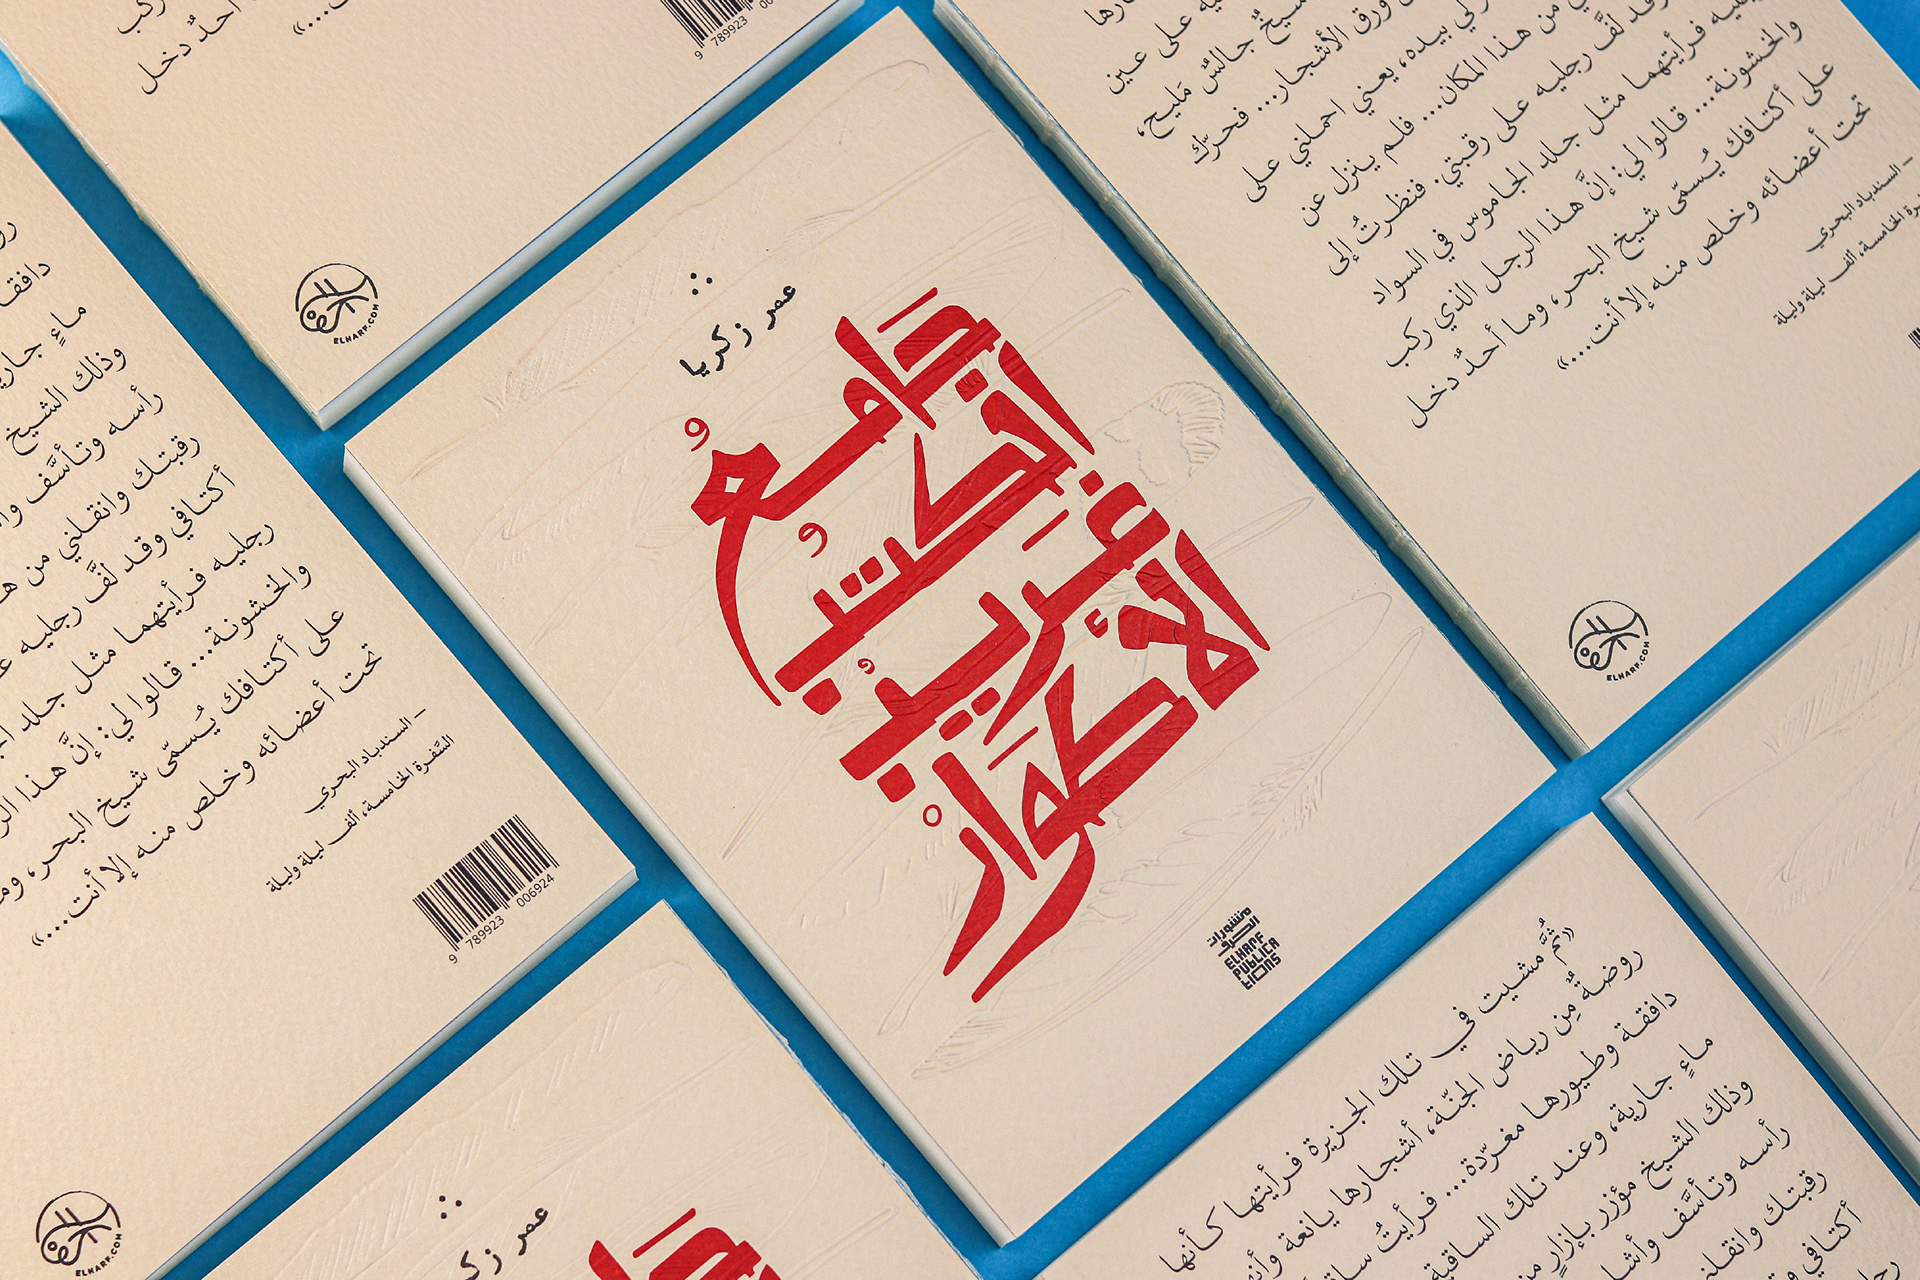 عمر زكريا
جامعُ
الكتبُ
غريبُ
الأكوارْ
منشورات
الحرف
ELHARF
PUBLICA
TIONS
احدٌ دخل
...»
9 789923
ELHARF.COM
ماءٍ جارية
وذلك الشيخ
رأسه وتأسَّف
رقبتك وانقلني من
أكتافي وقد لفَّ رجليه
رجليه فرأيتهما مثل جلد
والخشونة... قالوا لي: إنَّ هذا
على أكتافك يُسمّى شيخ البحر، وما
تحت أعضائه وخلص منه إلا أنت...»
– السندباد البحري
السَّفرة الخامسة، ألف ليلة وليلة
9 789923 006924
شيخٌ جالسٌ مَليح،
ورق الأشجار... فحرّك
لي بيده، يعني احملني على
من هذا المكان... فلم ينزل عن
وقد لفَّ رجليه على رقبتي. فنظرتُ إلى
رجليه فرأيتهما مثل جلد الجاموس في السواد
والخشونة... قالوا لي: إنَّ هذا الرجل الذي ركب
على أكتافك يُسمّى شيخ البحر، وما أحدٌ دخل
تحت أعضائه وخلص منه إلا أنت...»
– السندباد البحري
الخامسة، ألف ليلة وليلة
ELHARF.COM
«ثُمَّ مشيت في تلك الجزيرة فرأيتها كأنها
روضةٌ مِن رياض الجنّة، أشجارها يانعة
دافقة وطيورها مغرّدة... فرأيتُ
ماءٍ جارية، وعند تلك الساقية
وذلك الشيخ مؤزر بإزارٍ
رأسه وتأسَّف
رقبتك وانقلني
أكتافي
عمر
ELHARF.COM